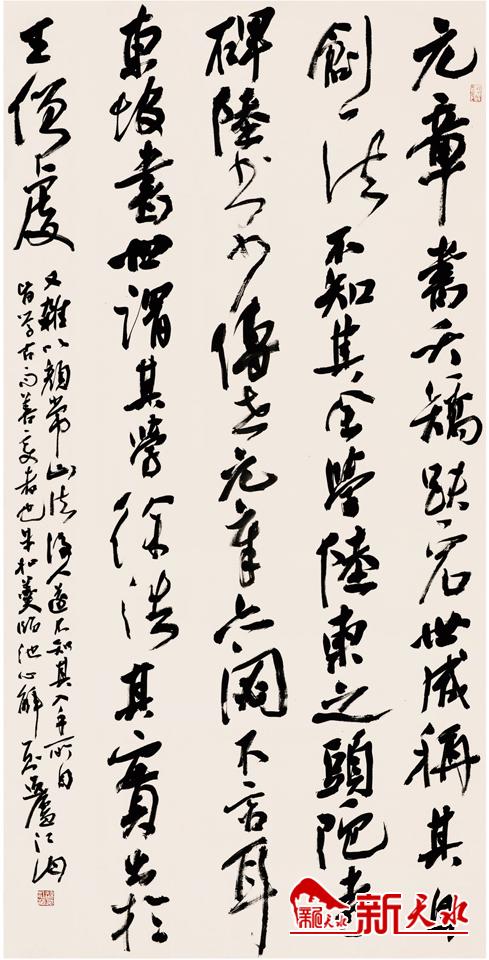 元章書夭矯跌宕世咸稱其
創一法不知其全學陸東之頭陀寺
碑陸書不多傳世元章亦閟不言耳
東坡書世謂其學徐浩其實出於
王僧虔
又雜以顏常山法後人遂不知其入手所自
皆學古而善變者也朱和羹臨池心解
新天水